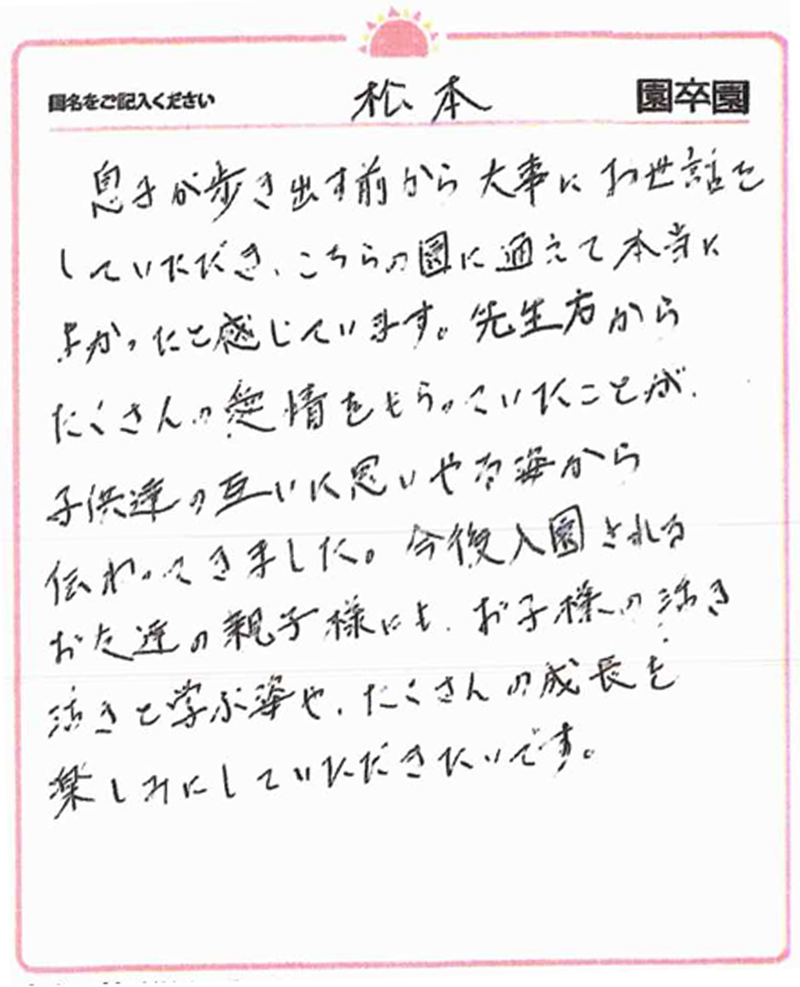 園名をご記入ください 松本 園卒園
息子が歩き出す前から大事にお世話を
していただき、こちらの園に通えて本当に
よかったと感じています。先生方から
たくさんの愛情をもらっていたことが、
子供達の互いに思いやる姿から
伝わってきました。今後入園される
お友達の親子様にも、お子様の活き
活きと学ぶ姿や、たくさんの成長を
楽しみにしていただきたいです。